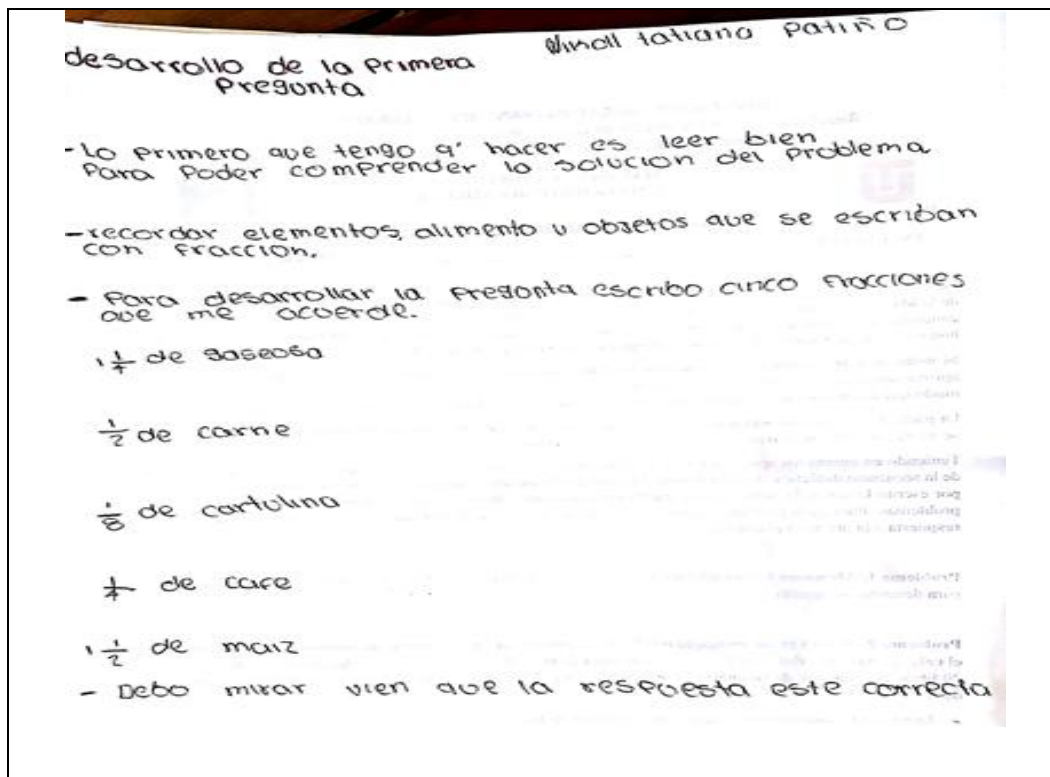 tatiana Patiño
desarrollo de la Primera
Pregunta
- Lo Primero que tengo q' hacer es leer bien
Para Poder comprender la solucion del Problema
- recordar elementos, alimento u objetos que se escriban
con fraccion.
- Para desarrollar la Pregunta escribo cinco fracciones
que me acuerde.
1 1/4 de gaseosa
1/2 de carne
1/8 de cartulina
1/4 de cafe
1 1/2 de maiz
- Debo mirar vien que la respuesta este correcta